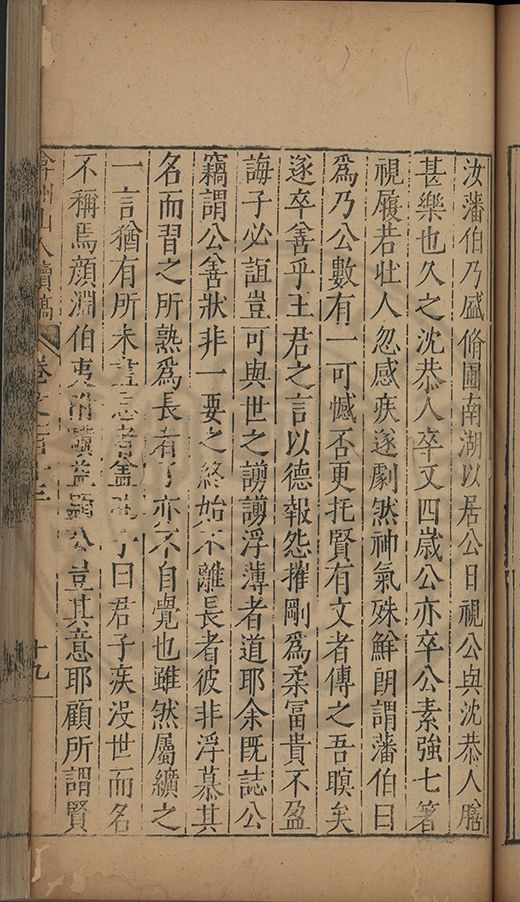 汝藩伯乃盛脩圃南湖以居公日視公與沈恭人膳
甚樂也久之沈恭人卒又四歲公亦卒公素強七箸
視履若壯人忽感疾遂劇然神氣殊鮮朗謂藩伯曰
爲乃公數有一可憾否更托賢有文者傳之吾瞑矣
遂卒善乎王君之言以德報怨摧剛爲柔富貴不盈
誨子必誼豈可與世之謭謭浮薄者道耶余既誌公
竊謂公善狀非一要之終始不離長者彼非浮慕其
名而習之所熟爲長者了亦不自覺也雖然屬纊之
一言猶有所未盡忘者曰君子疾沒世而名
不稱焉顏淵伯夷豈其意耶顧所謂賢
弇州山人續稿 卷之 十九